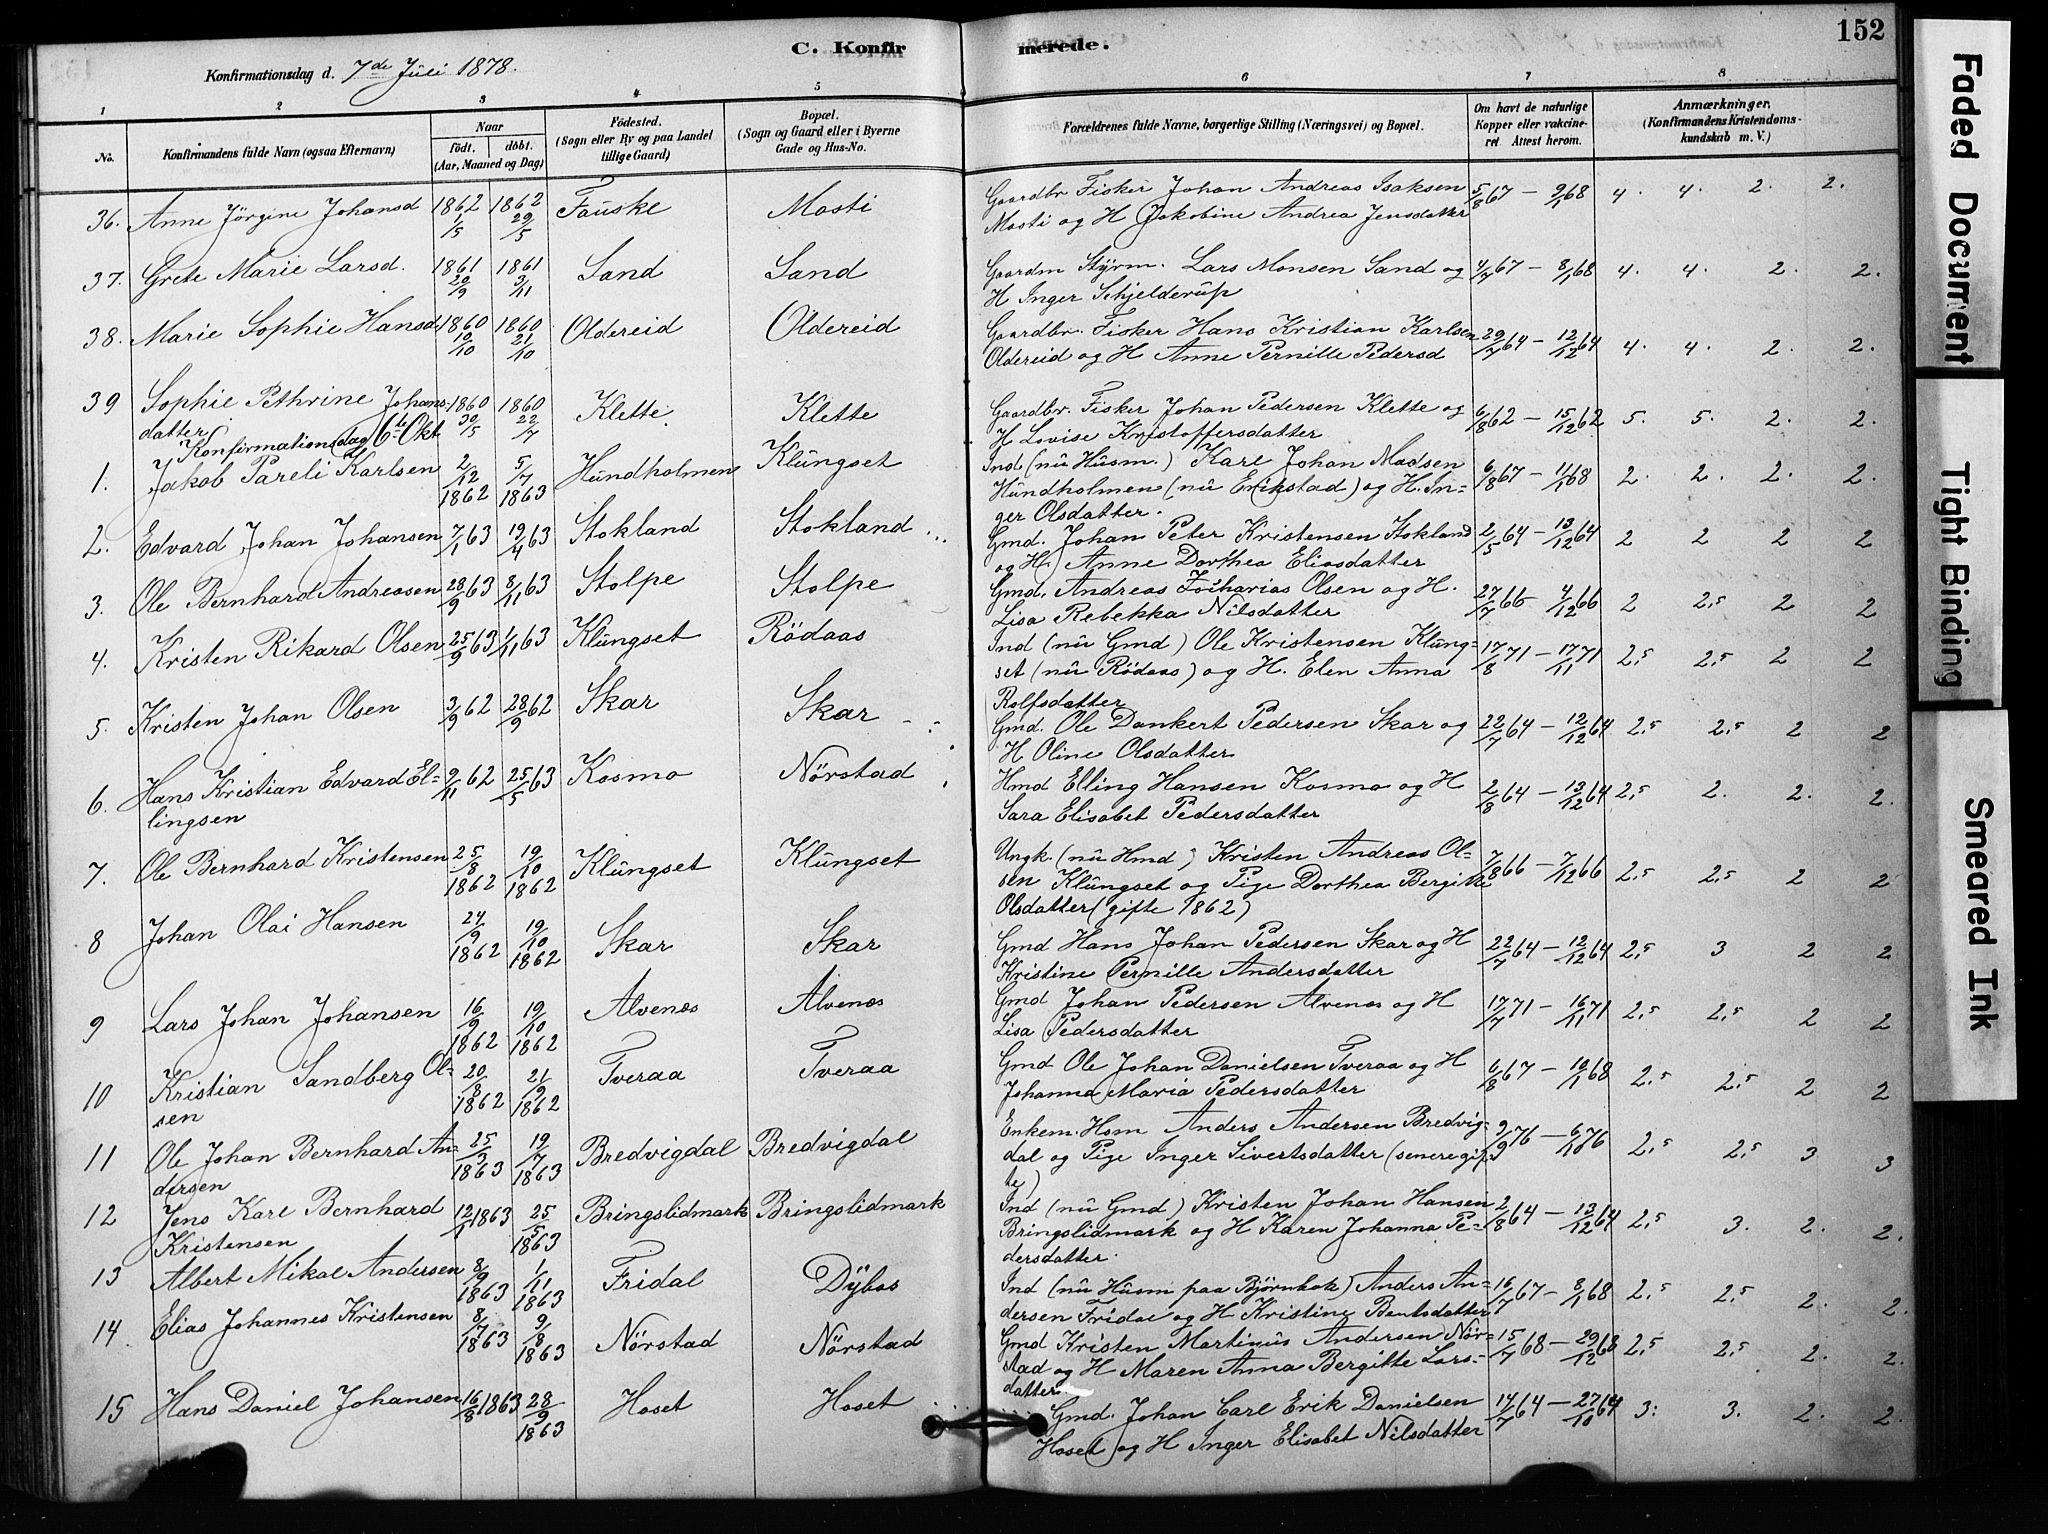 152
C. Konfirmerede.
Konfirmationsdag d. 7de Juli 1878.
1 2 3 4 5 6 7 8
No.
Konfirmandens fulde Navn (ogsaa Efternavn)
Naar
födt. döbt.
(Aar, Maaned og Dag)
Födested.
(Sogn eller By og paa Landet
tillige Gaard)
Bopæl.
(Sogn og Gaard eller i Byerne
Gade og Hus-No.
Forældrenes fulde Navne, borgerlige Stilling (Næringsvei) og Bopæl.
Om havt de naturlige
Kopper eller vakcine-
ret Attest herom.
Anmærkninger.
(Konfirmandens Kristendoms-
kundskab m. V.)
36. Anne Jörgine Johansd 1862 1/5 1862 29/5 Fauske Mosti Gaardbr Fisker Johan Andreas Isaksen 5/8 67 — 9/1 68 4. 4. 2. 2.
Mosti og H Jakobine Andrea Jensdatter
37. Grete Marie Larsd. 1861 22/9 1861 3/11 Sand Sand Gaardm Styrm. Lars Monsen Sand og 4/7 67 — 8/1 68 4. 4. 2. 2.
H Inger Schjelderup
38. Marie Sophie Hansd 1860 10/10 1860 21/10 Oldereid Oldereid Gaardbr. Fisker Hans Kristian Karlsen 29/7 64 — 12/12 64 4. 4. 2. 2.
Oldereid og H Anne Pernille Pedersd
39 Sophie Pethrine Johans- 1860 30/5 1860 22/7 Klette Klette Gaardbr. Fisker Johan Pedersen Klette og 6/8 62 — 15/12 62 5. 5. 2. 2.
datter H Lovise Kristoffersdatter
Konfirmationsdag 6te Okt
1. Jakob Pareli Karlsen 2/12 1862 5/7 1863 Hundholmen Klungset Ind (nu Husm.) Karl Johan Madsen 6/8 67 — 11/1 68 2. 2. 2. 2.
Hundholmen (nu Erikstad) og H. In-
ger Olsdatter.
2. Edvard Johan Johansen 7/1 63 19/4 63 Stokland Stokland Gmd. Johan Peter Kristensen Stokland 2/5 64 — 13/12 64 2 2 2 2
og H Anne Dorthea Eliasdatter
3. Ole Bernhard Andreasen 28/9 63 8/11 63 Stolpe Stolpe Gmd. Andreas Zacharias Olsen og H. 27/7 66 — 4/12 66 2 2,5 2 2
Lisa Rebekka Nilsdatter
4. Kristen Rikard Olsen 25/9 63 1/11 63 Klungset Rödaas Ind (nu Gmd) Ole Kristensen Klung- 17/8 71 — 17/11 71 2,5 2,5 2 2
set (nu Rödaas) og H. Elen Anna
Rolfsdatter
5. Kristen Johan Olsen 3/9 62 28/9 62 Skar Skar Gmd. Ole Dankert Pedersen Skar og 22/7 64 — 12/12 64 2,5 2,5 2 2
H Oline Olsdatter
6. Hans Kristian Edvard El- 9/11 62 25/5 63 Kosmo Nörstad Hmd Elling Hansen Kosmo og H 2/8 64 — 13/12 64 2,5 2. 2. 2.
lingsen Sara Elisabet Pedersdatter
7. Ole Bernhard Kristensen 25/8 1862 19/10 1862 Klungset Klungset Ungk. (nu Hmd) Kristen Andreas Ol- 7/8 66 — 7/12 66 2,5 2,5 2 2
sen Klungset og Pige Dorthea Bergitte
Olsdatter (gifte 1862)
8 Johan Olai Hansen 24/9 1862 19/10 1862 Skar Skar Gmd Hans Johan Pedersen Skar og H 22/7 64 — 12/12 64 2,5 3 2 2
Kristine Pernille Andersdatter
9 Lars Johan Johansen 16/9 1862 19/10 1862 Alvenes Alvenes Gmd Johan Pedersen Alvenes og H 17/7 71 — 16/11 71 2,5 2,5 2 2
Lisa Pedersdatter
10 Kristian Sandberg Ol- 20/8 1862 21/9 1862 Tveraa Tveraa Gmd Ole Johan Danielsen Tveraa og H 6/8 67 — 10/1 68 2,5 2,5 2 2
sen Johanna Maria Pedersdatter
11 Ole Johan Bernhard An- 25/3 1863 19/7 1863 Bredvigdal Bredvigdal Enkem. Hsm Anders Andersen Bredvig- 9/9 76 — 6/10 76 2,5 2,5 3 3
dersen dal og Pige Inger Sivertsdatter (senere gif
te)
12 Jens Karl Bernhard 12/1 1863 25/5 1863 Bringslidmark Bringslidmark Ind (nu Gmd) Kristen Johan Hansen 2/8 64 — 13/12 64 2,5 3. 2. 2.
Kristensen Bringslidmark og H Karen Johanna Pe-
dersdatter.
13 Albert Mikal Andersen 8/9 1863 1/11 1863 Fridal Dybos Ind (nu Husm paa Bjørnbak) Anders An- 16/7 67 — 8/1 68 2,5 2,5 2. 2.
dersen Fridal og H Kristine Bentsdatter
14. Elias Johannes Kristensen 8/7 1863 9/8 1863 Nörstad Nörstad Gmd Kristen Martinus Andersen Nör- 15/7 68 — 29/12 68 2,5 2,5 2. 2.
stad og H Maren Anna Bergitte Lars-
datter
15 Hans Daniel Johansen 16/8 1863 28/9 1863 Hoset Hoset Gmd. Johan Carl Erik Danielsen 14/7 64 — 27/10 64 3. 3. 2. 2.
Hoset og H Inger Elisabet Nilsdatter
Faded Document
Tight Binding
Smeared Ink